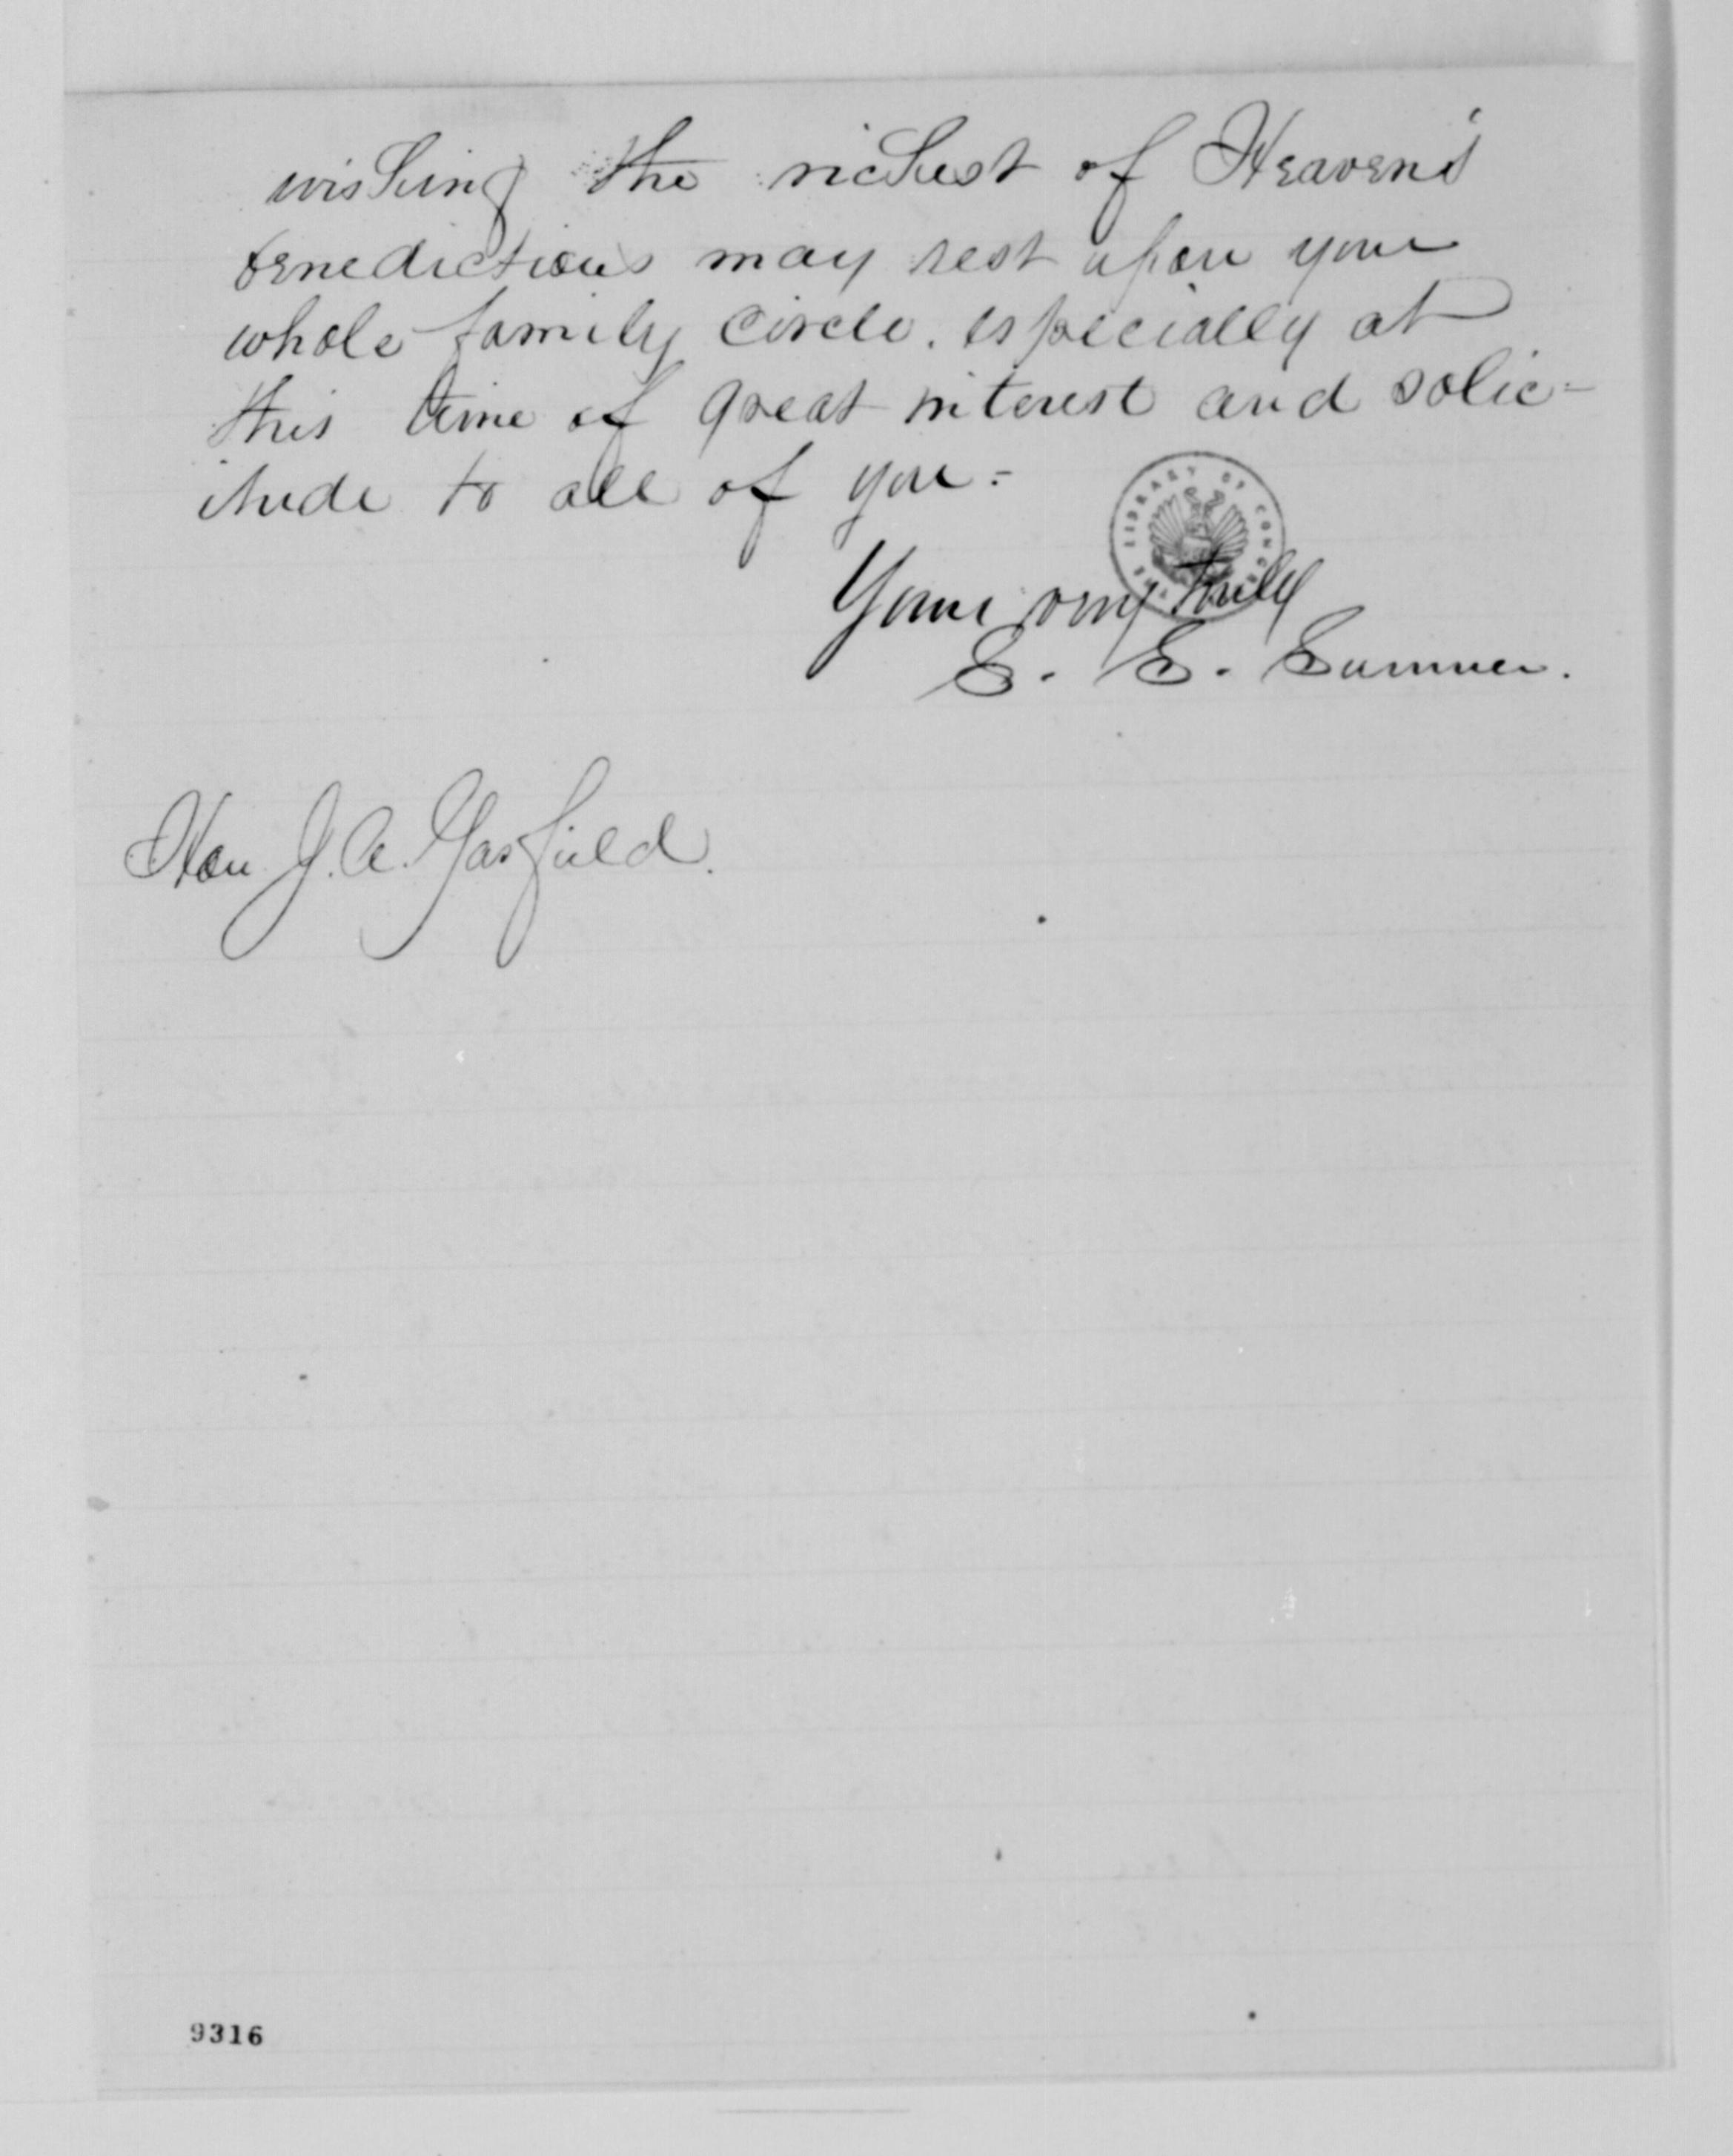 wishing the richest of Heaven's
benedictions may rest upon your
whole family circle. especially at
this time of great interest and solic-
itude to all of you-
THE LIBRARY OF CONGRESS
Yours very truly
E. E. Sumner.
Hon J. A. Garfield.
9316